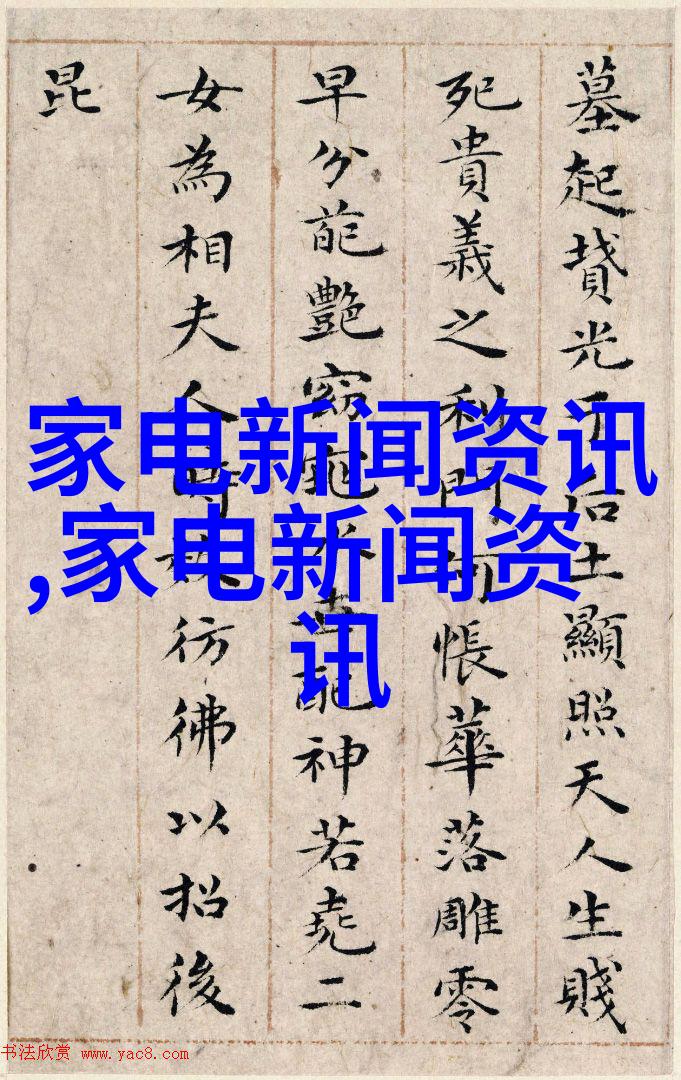 墓起墳光于后土顯照天人生賤
死貴義之利門何帳華落雕零
早分葩艷窈窕世配神若堯二
女為相夫人時彷彿以招後
昆
家电新闻资讯
,家电新闻资
讯
书法欣赏 www.yac8.com